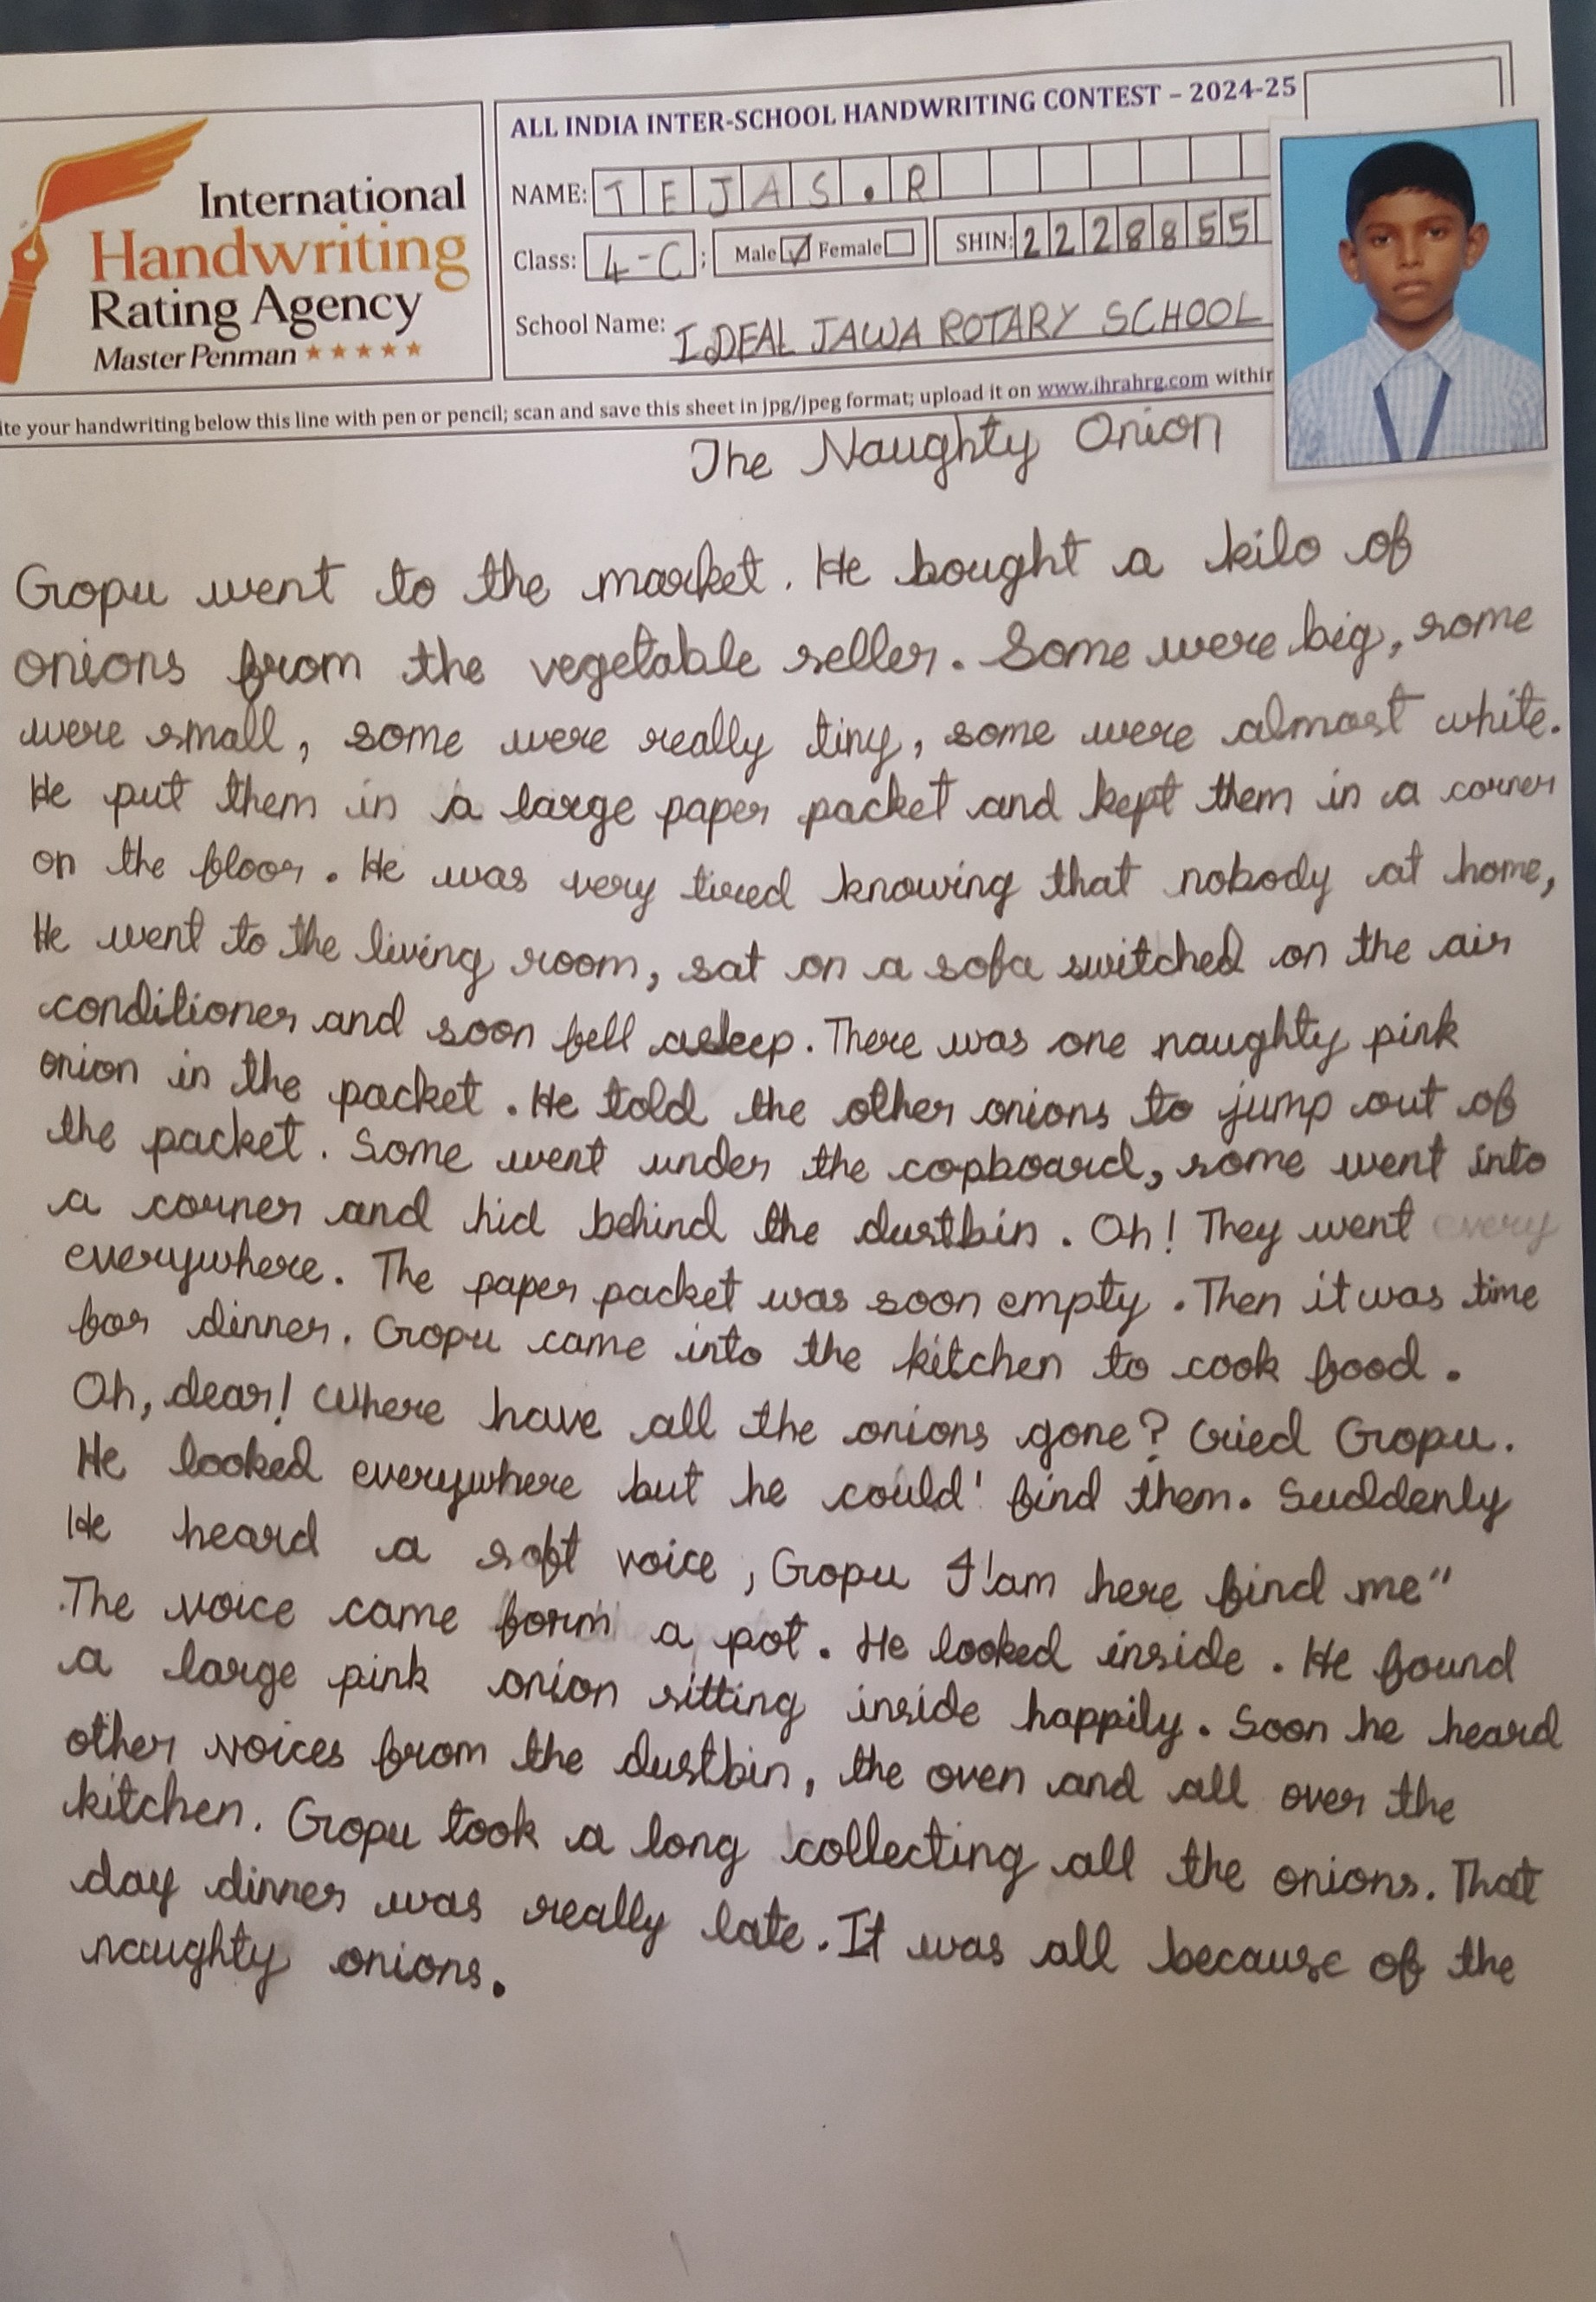 ALL INDIA INTER-SCHOOL HANDWRITING CONTEST – 2024-25
International
Handwriting
Rating Agency
Master Penman
NAME: TEJAS.R
Class: 4-C; Male ✓ Female SHIN: 2228855
School Name: IDEAL JAWA ROTARY SCHOOL
your handwriting below this line with pen or pencil; scan and save this sheet in jpg/jpeg format; upload it on www.ihrahrg.com within
The Naughty Onion
Gopu went to the market. He bought a kilo of
onions from the vegetable seller. Some were big, some
were small, some were really tiny, some were almost white.
He put them in a large paper packet and kept them in a corner
on the floor. He was very tired knowing that nobody at home,
He went to the living room, sat on a sofa switched on the air
conditioner and soon fell asleep. There was one naughty pink
onion in the packet. He told the other onions to jump out of
the packet. Some went under the copboard, some went into
a corner and hid behind the dustbin. Oh! They went every
everywhere. The paper packet was soon empty. Then it was time
for dinner. Gopu came into the kitchen to cook food.
Oh, dear! Where have all the onions gone? Cried Gopu.
He looked everywhere but he could' find them. Suddenly
He heard a soft voice, Gopu I'am here find me"
The voice came form a pot. He looked inside. He found
a large pink onion sitting inside happily. Soon he heard
other voices from the dustbin, the oven and all over the
kitchen. Gopu took a long collecting all the onions. That
day dinner was really late. It was all because of the
naughty onions.